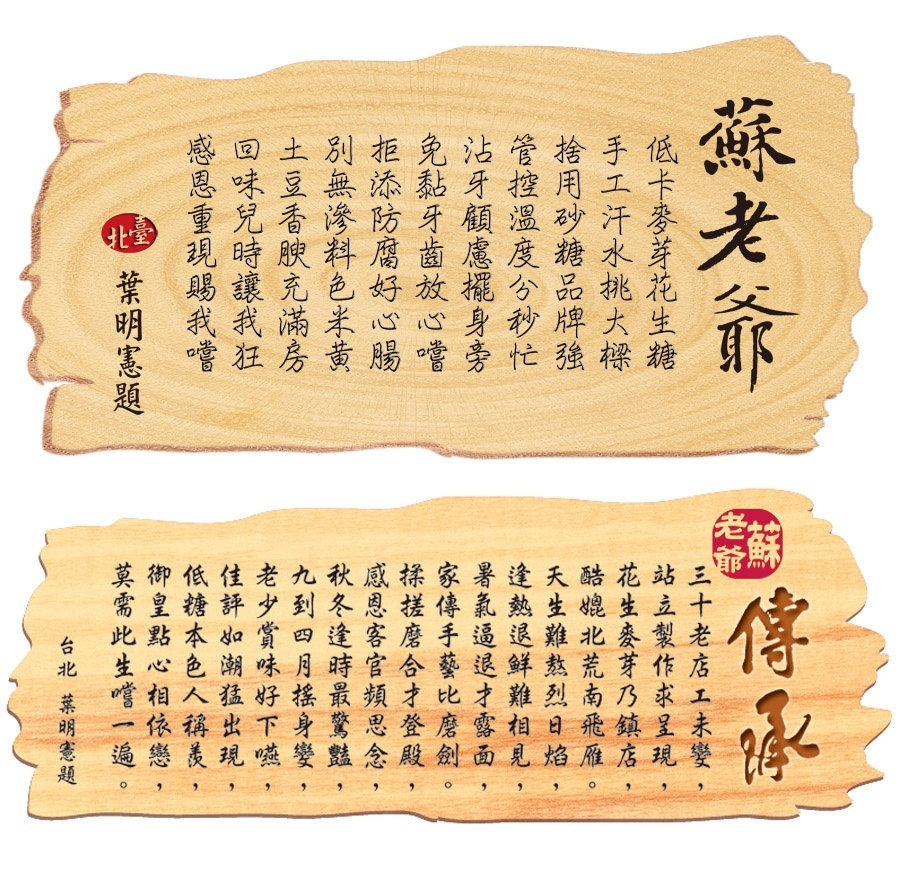 蘇老爺
低卡麥芽花生糖
手工汗水挑大樑
捨用砂糖品牌強
管控溫度分秒忙
沾牙顧慮擺身旁
免黏牙齒放心嚐
拒添防腐好心腸
別無滲料色米黃
土豆香腴充滿房
回味兒時讓我狂
感恩重現賜我嚐
臺北
葉明憲題
蘇老爺
傳承
三十老店工未變，
站立製作求呈現，
花生麥芽乃鎮店，
酷媲北荒南飛雁。
天生難熬烈日焰，
逢熱退鮮難相見，
暑氣逼退才露面，
家傳手藝比磨劍。
揉搓磨合才登殿，
感恩客官頻思念，
秋冬逢時最驚豔，
九到四月搖身變，
老少賞味好下嚥，
佳評如潮猛出現，
低糖本色人稱羨，
御皇點心相依戀，
莫需此生嚐一遍。
台北 葉明憲題